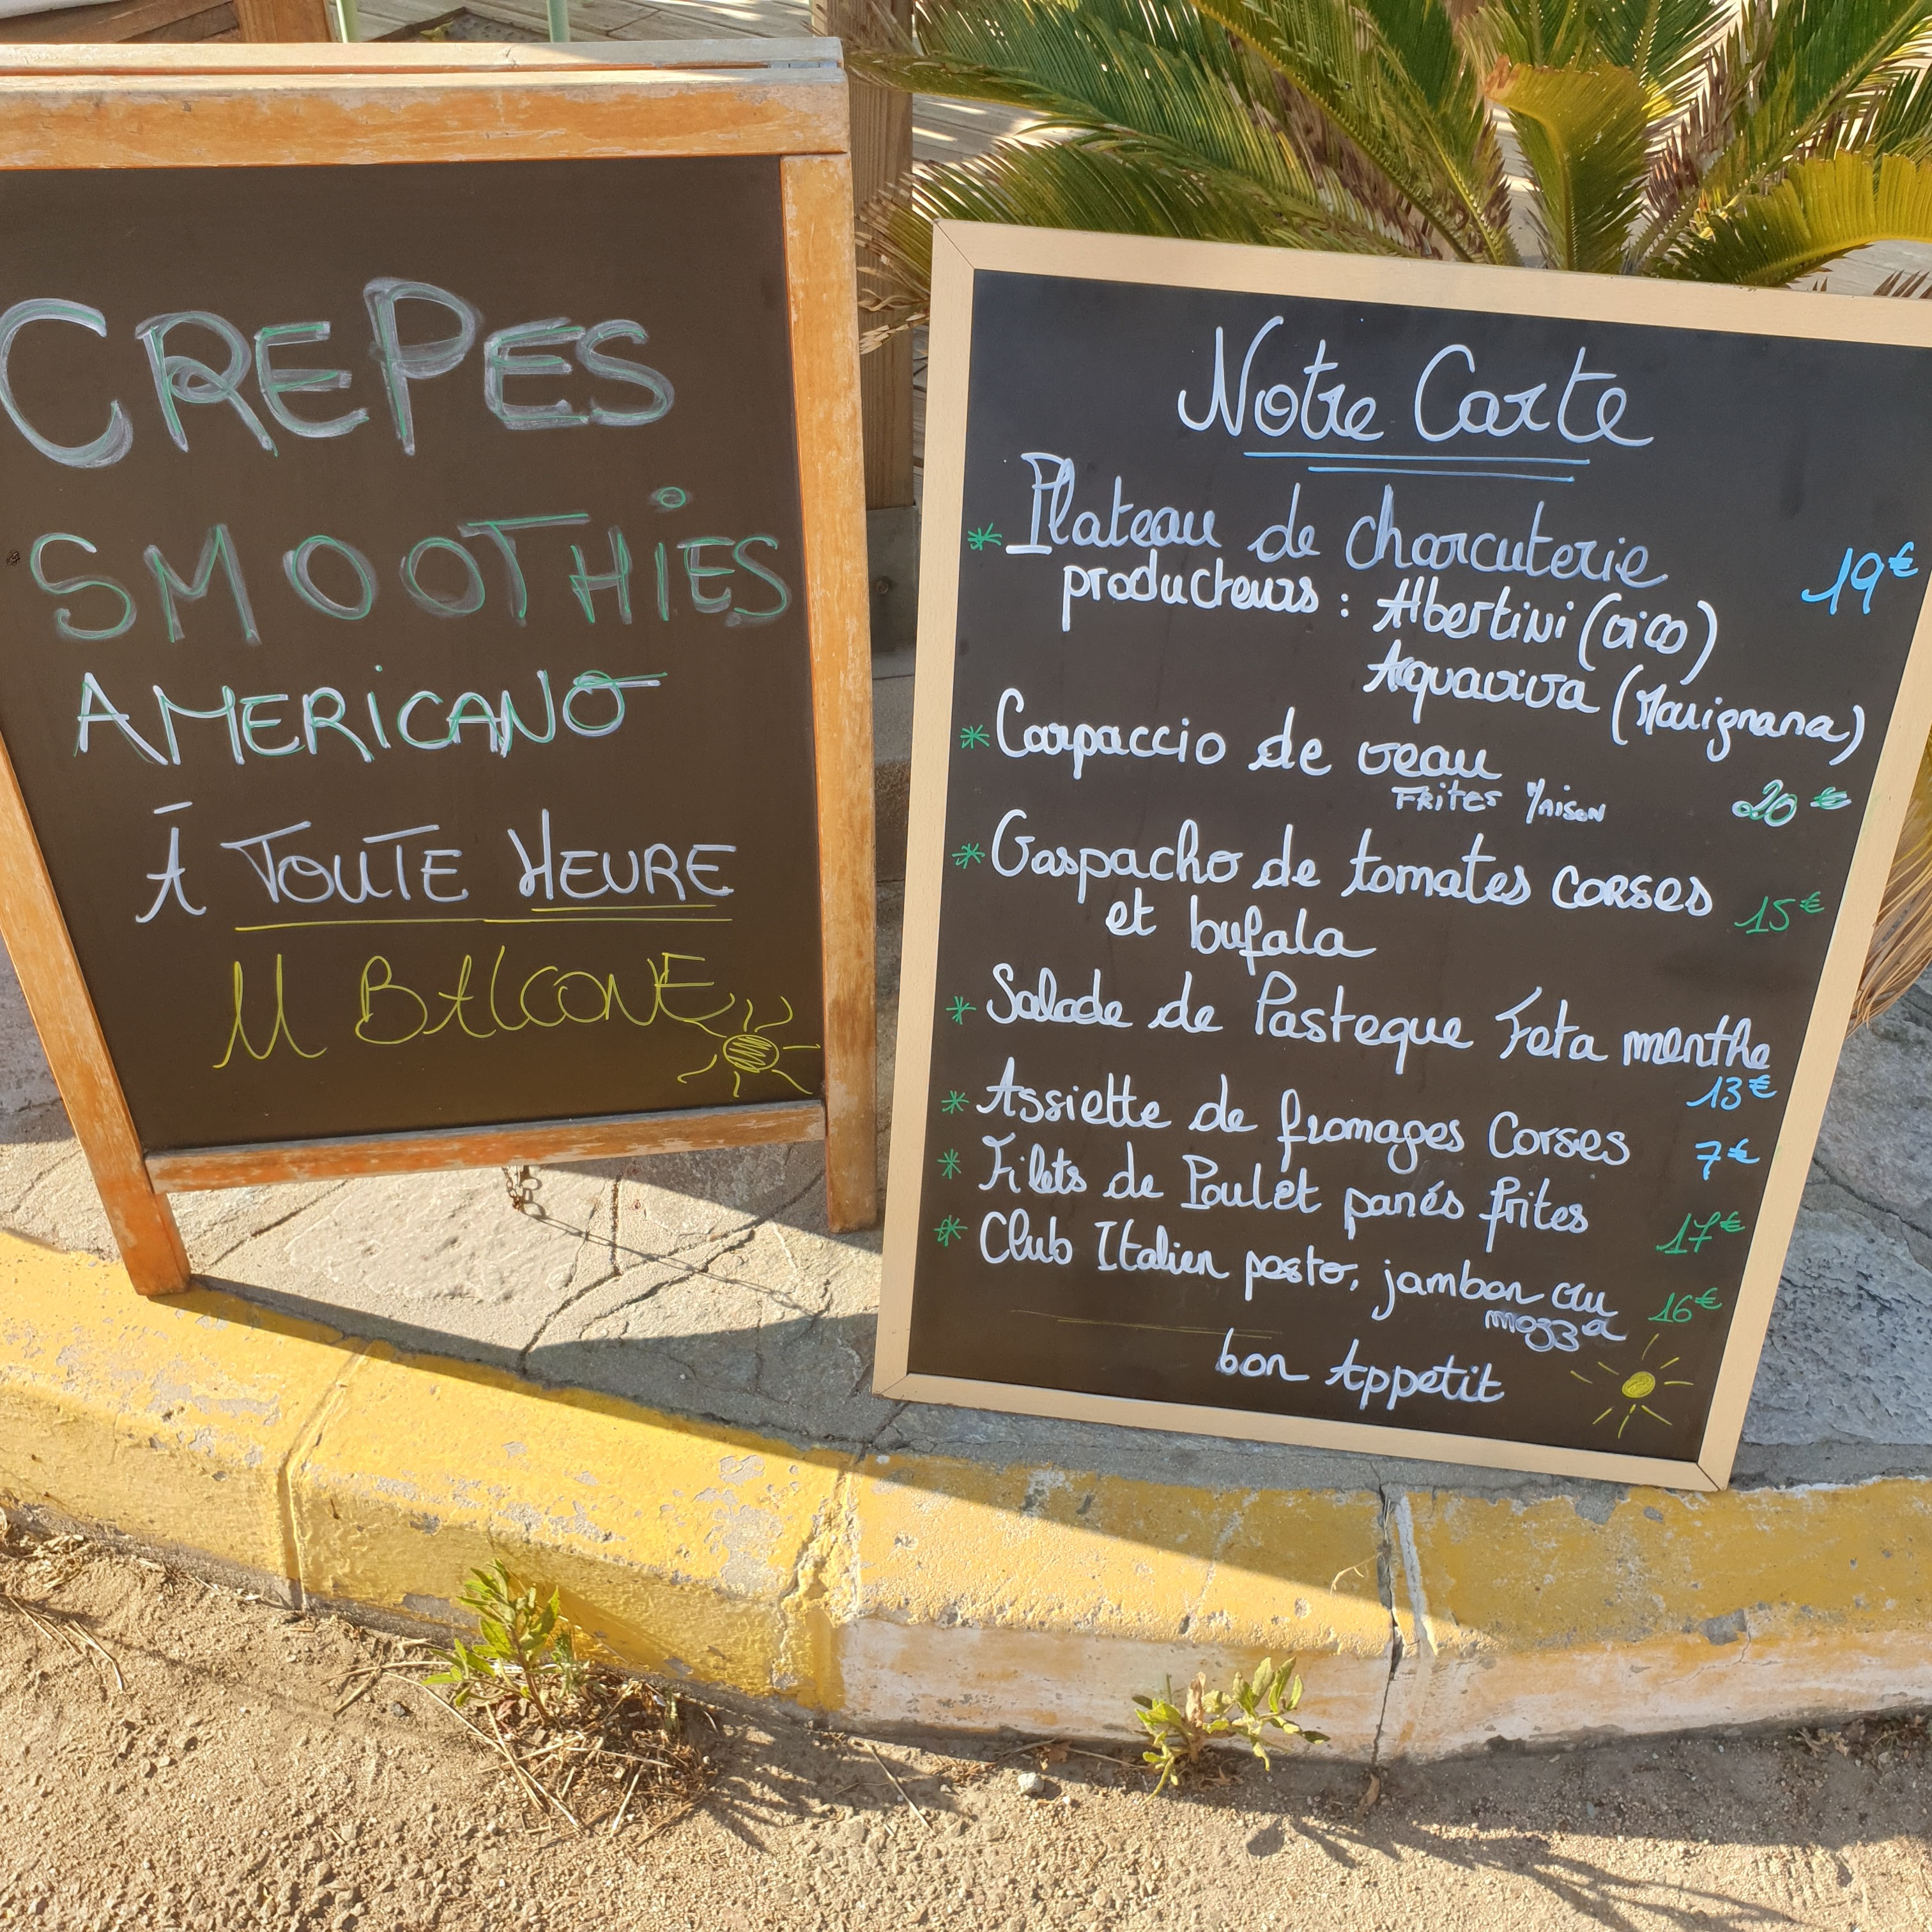 CREPES
SMOOTHIES
AMERICANO
À TOUTE HEURE
U BALCONE
Notre Carte
* Plateau de charcuterie 19€
producteurs : Albertini (vico)
Aquaviva (Marignana)
* Carpaccio de veau
FRITES MAISON 20€
* Gaspacho de tomates corses 15€
et bufala
* Salade de Pasteque Feta menthe
13€
* Assiette de fromages Corses 7€
* Filets de Poulet panés frites 17€
* Club Italien pesto, jambon cru 16€
mozza
bon Appetit